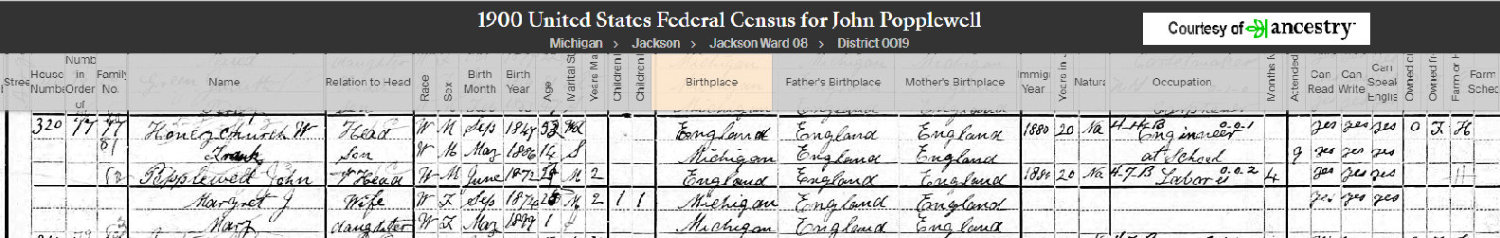 1900 United States Federal Census for John Popplewell
Courtesy of ancestry
Michigan > Jackson > Jackson Ward 08 > District 0019
Street House Number Numb in Order of Family No. Name Relation to Head Race Sex Birth Month Birth Year Age Marital St Years Ma Children Children Birthplace Father's Birthplace Mother's Birthplace Immigr Year Years in Natura Occupation Months N Attended Can Read Can Write Can Speak Englis Owned o Owned fr Farm or H Farm Sched
320 77 77 Honeychurch W Head W M Sep 1847 52 Wd England England England 1880 20 Na Engineer yes yes yes O F H
81 Frank Son W M May 1886 14 S Michigan England England at School 9 yes yes yes
Popplewell John Head W M June 1872 M 2 England England England 1880 20 Na Laborer 4 yes yes yes
Margret J Wife W F Sep M 2 1 1 Michigan England England yes yes yes
Mary daughter W F May 1899 1 Michigan England England